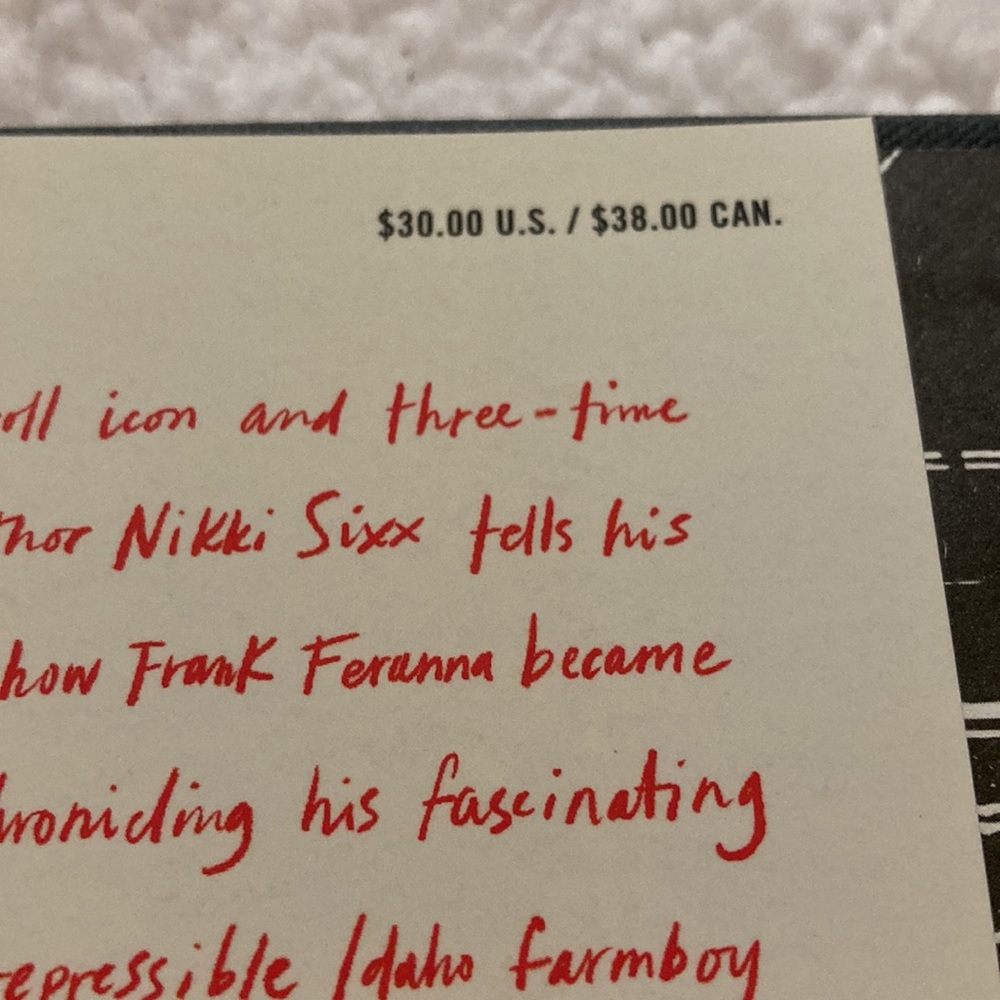 $30.00 U.S. / $38.00 CAN.
icon and three-time
Nikki Sixx tells his
how Frank Feranna became
his fascinating
Idaho farmboy